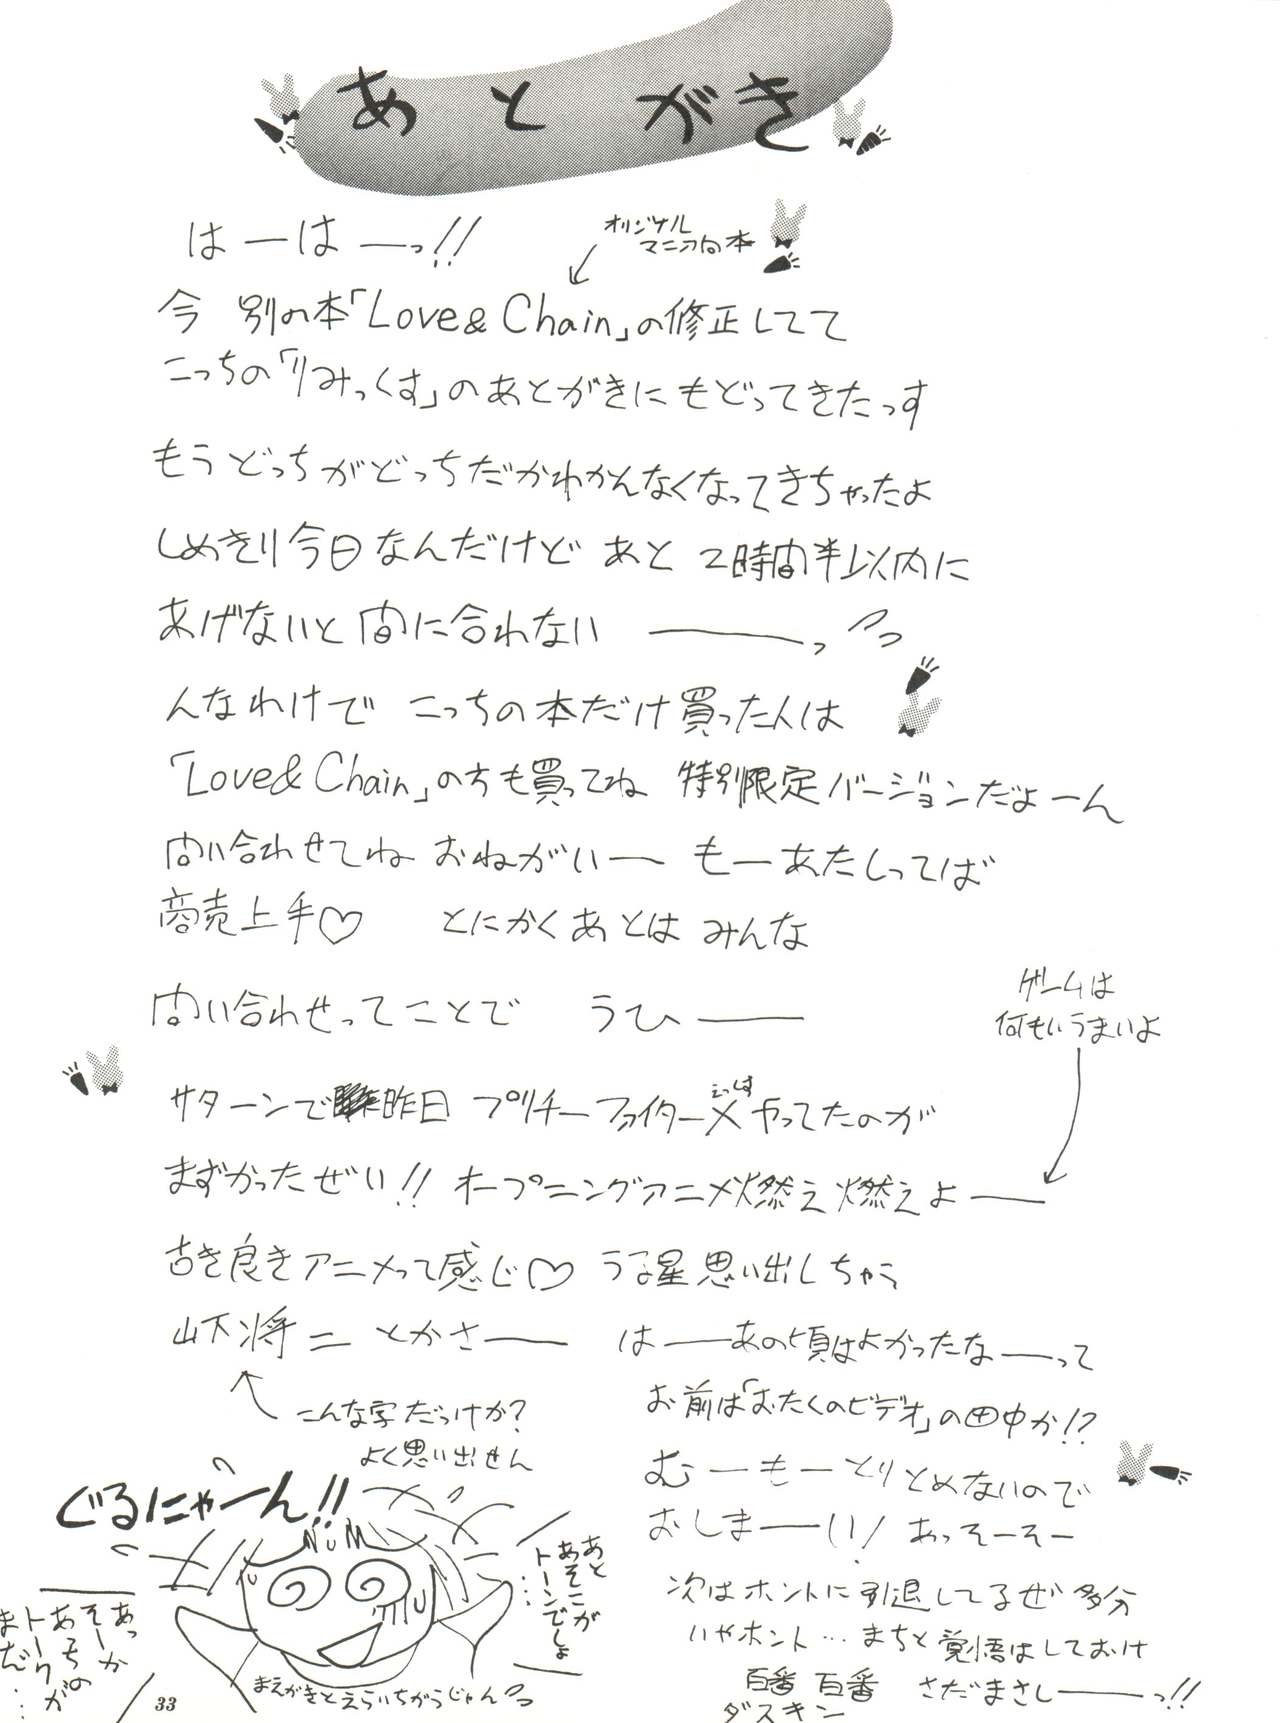 あとがき
はーはーっ!!
オリジナル
マニア向本
今 別の本「Love & Chain」の修正してて
こっちの「りみっくす」のあとがきにもどってきたっす
もうどっちがどっちだかわかんなくなってきちゃったよ
しめきり今日なんだけど あと 2時間半以内に
あげないと間に合わない ーーっ
んなわけで こっちの本だけ買った人は
「Love & Chain」の方も買ってね 特別限定バージョンだよーん
問い合わせてね おねがいー もーあたしってば
商売上手♡ とにかくあとは みんな
問い合わせってことで うひー
ゲームは
何もいうまいよ
サターンで昨日 プリチーファイターXやってたのが
えっくす
まずかったぜい!! オープニングアニメ燃え燃えよー
古き良きアニメって感じ♡ うる星思い出しちゃう
山下将二 とかさー はーあの頃はよかったなーって
こんな字だっけか?
よく思い出せん
お前は「おたくのビデオ」の田中か!?
むーもーとりとめないので
おしまーい! あっそーそー
次はホントに引退してるぜ 多分
いやホント… まちと覚悟はしておけ
百番 百番 さだまさしーっ!!
ダスキン
ぐるにゃーん!!
NUM
あと
あそこが
トーンでしょ
……
あっか
そーか
あっちの
トークが
まだ…
まえがきとえらいちがうじゃん
33